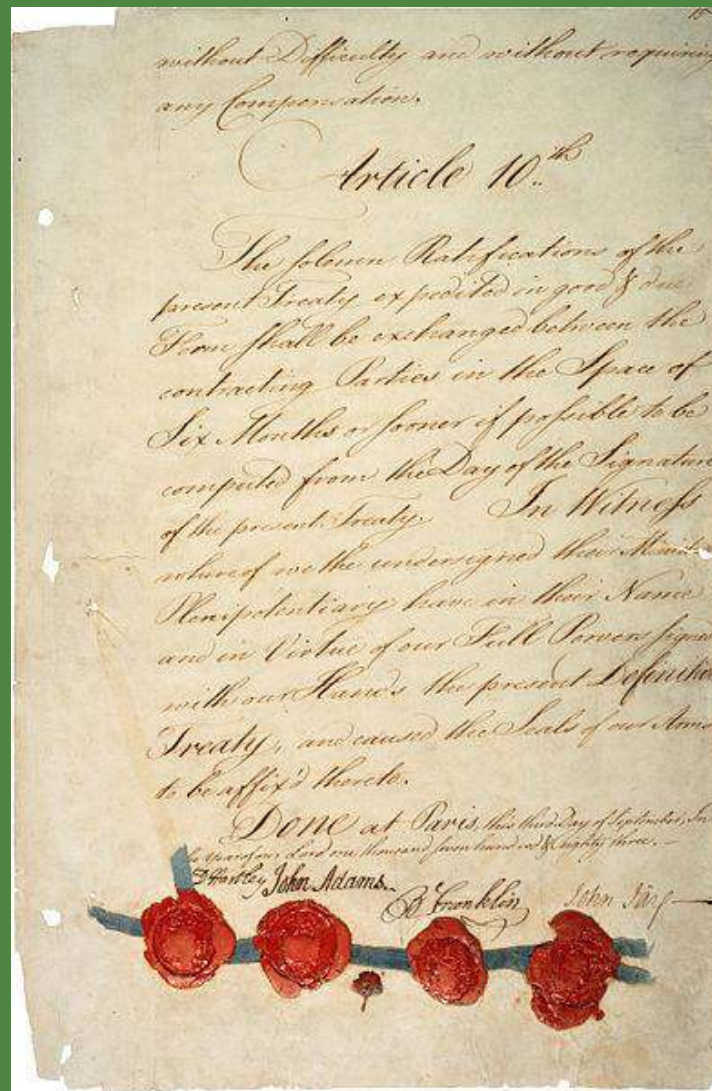 without Difficulty and without requiring
any Compensation.
Article 10.th
The solemn Ratifications of the
present Treaty expedited in good & due
Form shall be exchanged between the
contracting Parties in the Space of
Six Months or sooner if possible to be
computed from the Day of the Signature
of the present Treaty. In Witness
whereof we the undersigned their Minist
Plenipotentiary have in their Name
and in Virtue of our Full Powers signed
with our Hands the present Definitive
Treaty, and caused the Seals of our Arms
to be affix'd thereto.
DONE at Paris, this third Day of September, In
the Year of our Lord one thousand seven hundred & eighty three.—
D Hartley John Adams. B Franklin John Jay—